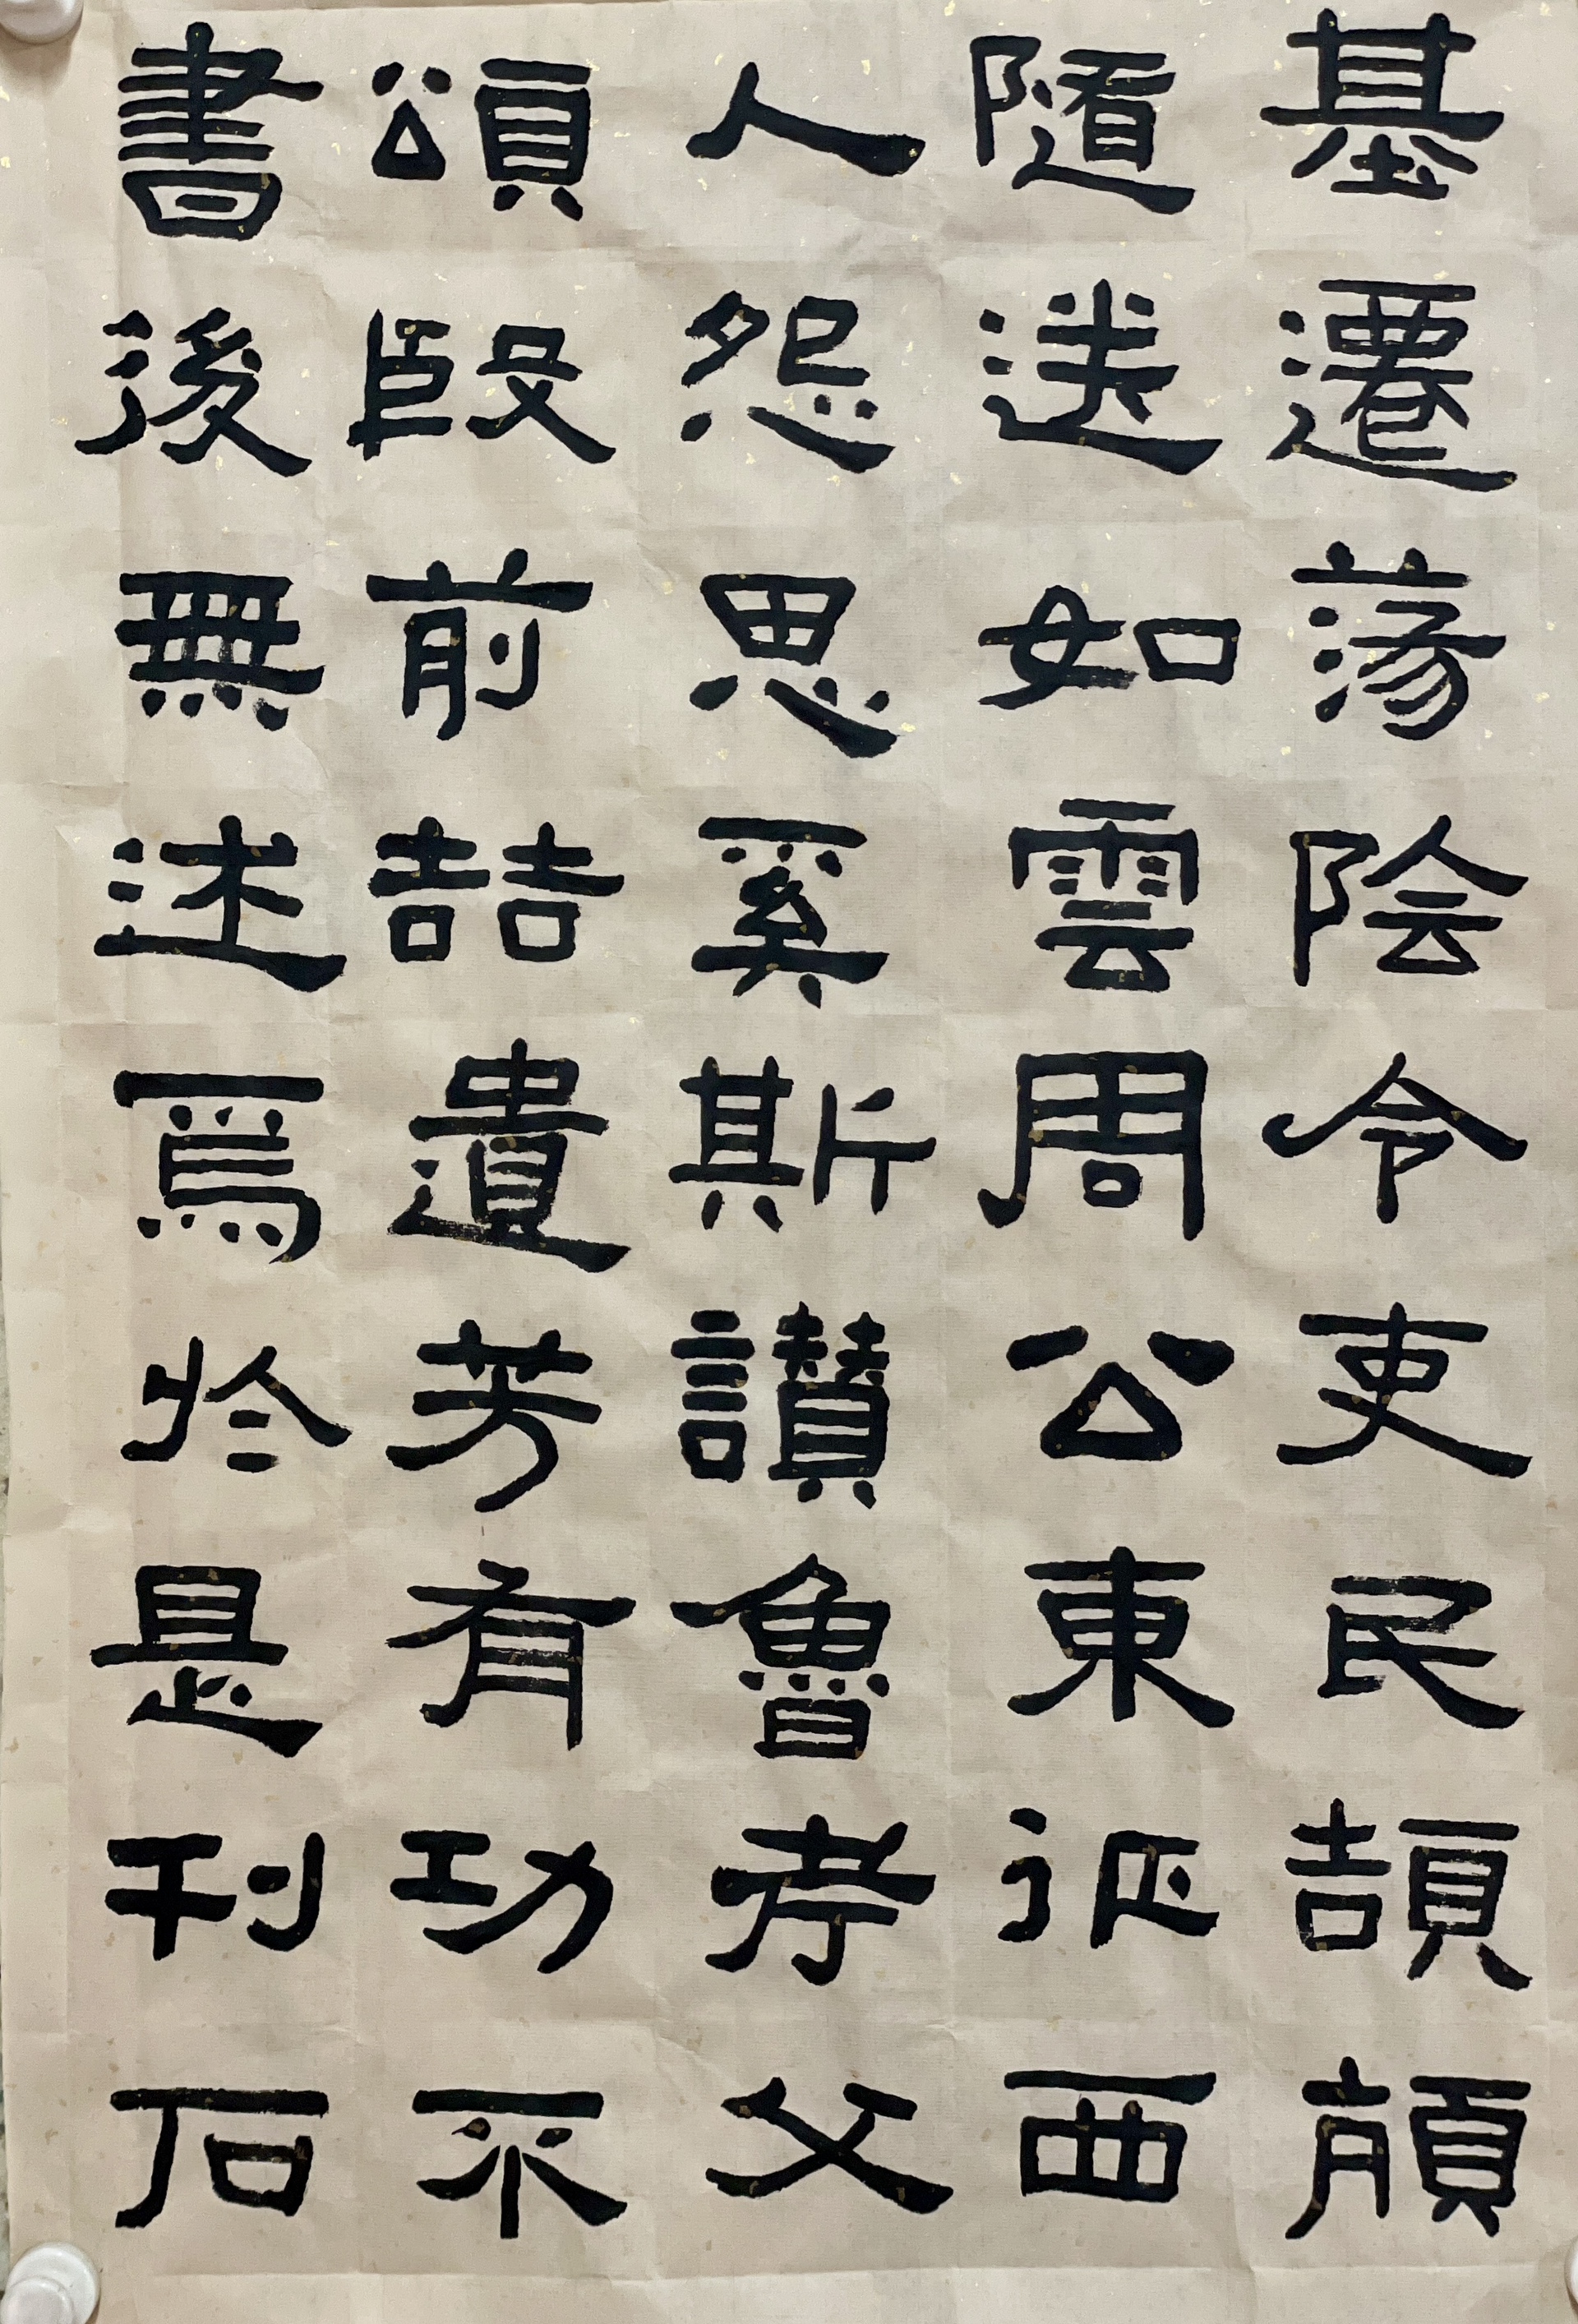 基遷蕩陰令吏民頡頏
隨送如雲周公東征西
人怨思奚斯讚魯考父
頌殷前喆遺芳有功不
書後無述焉於是刊石